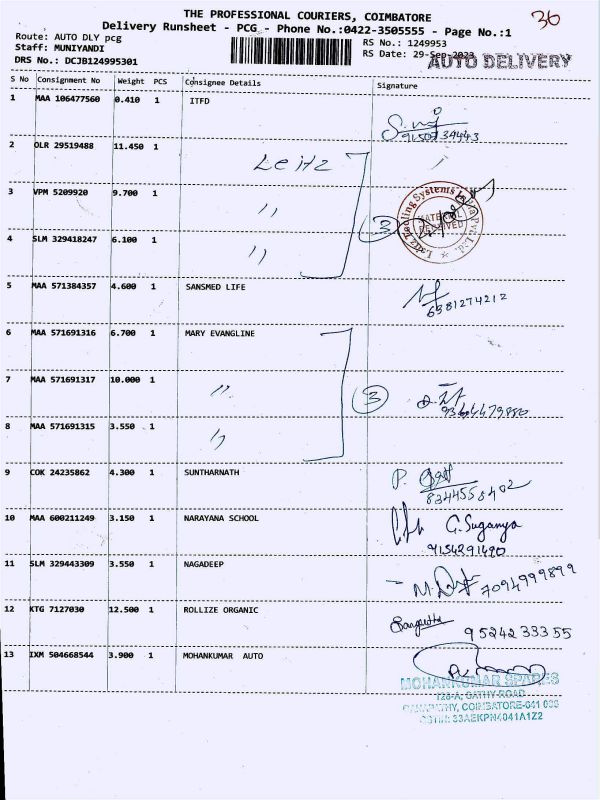 THE PROFESSIONAL COURIERS, COIMBATORE
36
Delivery Runsheet - PCG - Phone No.:0422-3505555 - Page No.:1
Route: AUTO DLY pcg
Staff: MUNIYANDI
DRS No.: DCJB124995301
RS No.: 1249953
RS Date: 29-Sep-2023
AUTO DELIVERY
S No Consignment No Weight PCS Consignee Details Signature
1 MAA 106477560 0.410 1 ITFD
9150734443
2 OLR 29519488 11.450 1 Leitz
3 VPM 5209920 9.700 1 〃 3
MATERIAL RECEIVED
4 SLM 329418247 6.100 1 〃
5 MAA 571384357 4.600 1 SANSMED LIFE
6381274212
6 MAA 571691316 6.700 1 MARY EVANGLINE
7 MAA 571691317 10.000 1 〃 3
8 MAA 571691315 3.550 1 〃
9 COK 24235862 4.300 1 SUNTHARNATH
10 MAA 600211249 3.150 1 NARAYANA SCHOOL
G. Suganya
9154291490
11 SLM 329443309 3.550 1 NAGADEEP
7094999899
12 KTG 7127030 12.500 1 ROLLIZE ORGANIC
9524233355
13 IXM 504668544 3.900 1 MOHANKUMAR AUTO
MOHANKUMAR SPARES
COIMBATORE-641 006
GSTIN: 33AEKPN4041A1Z2